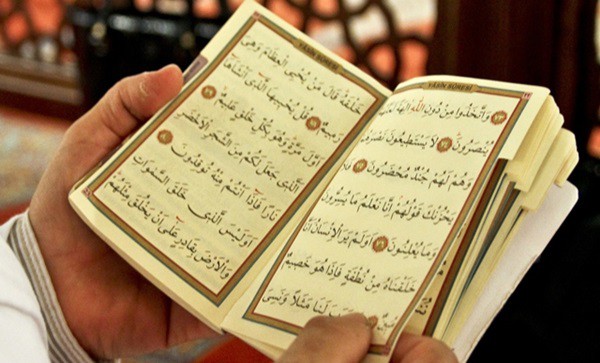 YASİN SÛRESİ
٧٣ وَاتَّخَذُوا مِنْ دُونِ اللّٰهِ
يُنْصَرُونَ ٧٤ لَا يَسْتَطِيعُونَ نَصْرَهُمْ
وَهُمْ لَهُمْ جُنْدٌ مُحْضَرُونَ ٧٥
يَحْزُنْكَ قَوْلُهُمْ اِنَّا نَعْلَمُ مَا يُسِرُّونَ
وَمَا يُعْلِنُونَ ٧٦ اَوَلَمْ يَرَ الْاِنْسَانُ اَنَّا
خَلَقْنَاهُ مِنْ نُطْفَةٍ فَاِذَا هُوَ خَصِيمٌ
لَنَا مَثَلًا وَنَسِيَ
YASİN SÛRESİ
خَلْقَهُ قَالَ مَنْ يُحْيِي الْعِظَامَ وَهِيَ
رَمِيمٌ ٧٨ قُلْ يُحْيِيهَا الَّذِى اَنْشَاَهَا
اَوَّلَ مَرَّةٍ وَهُوَ بِكُلِّ خَلْقٍ عَلِيمٌ ٧٩
اَلَّذِى جَعَلَ لَكُمْ مِنَ الشَّجَرِ الْاَخْضَرِ
نَارًا فَاِذَا اَنْتُمْ مِنْهُ تُوقِدُونَ ٨٠
اَوَلَيْسَ الَّذِى خَلَقَ السَّمٰوَاتِ
وَالْاَرْضَ بِقَادِرٍ عَلٰى اَنْ يَخْلُقَ مِثْلَهُمْ